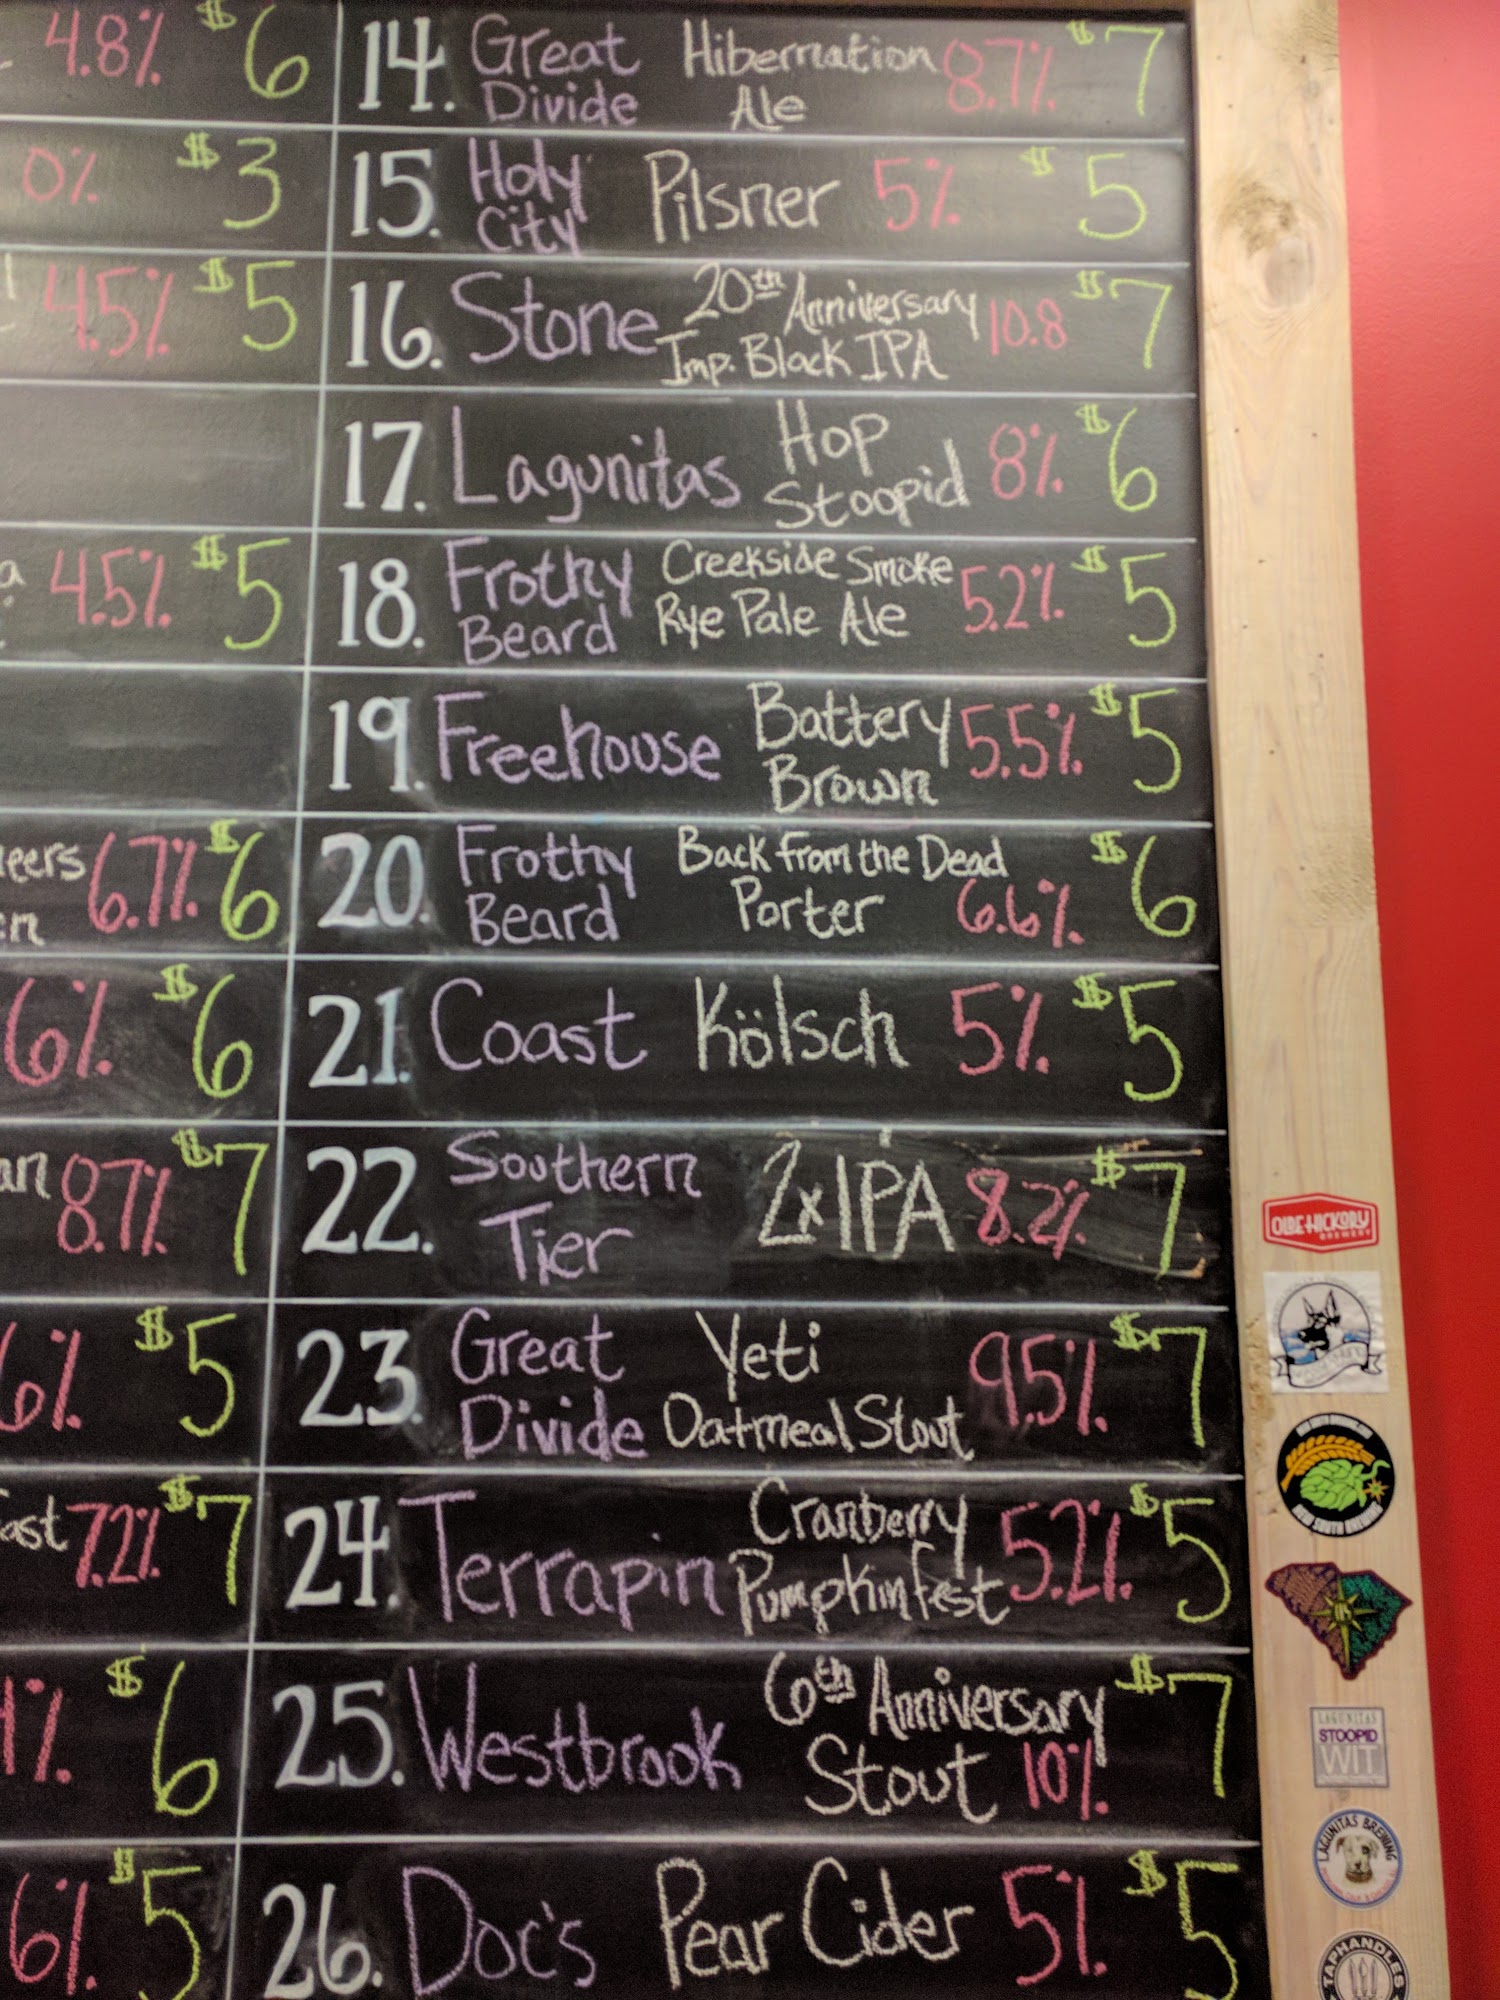 4.8% $6
0% $3
4.5% $5
a 4.5% $5
eers 6.7% $6
en
6% $6
an 8.7% $7
6% $5
ast 7.2% $7
1% $6
6% $5
14. Great Hibernation 8.7% $7
Divide Ale
15. Holy Pilsner 5% $5
City
16. Stone 20th Anniversary 10.8 $7
Imp. Black IPA
17. Lagunitas Hop 8% $6
Stoopid
18. Frothy Creekside Smoke 5.2% $5
Beard Rye Pale Ale
19. Freehouse Battery 5.5% $5
Brown
20. Frothy Back from the Dead $6
Beard Porter 6.6%
21. Coast Kölsch 5% $5
22. Southern 2xIPA 8.2% $7
Tier
23. Great Yeti 9.5% $7
Divide Oatmeal Stout
24. Terrapin Cranberry 5.2% $5
Pumpkinfest
25. Westbrook 6th Anniversary $7
Stout 10%
26. Doc's Pear Cider 5% $5
OLDE HICKORY
BREWERY
NEW SOUTH BREWING
LAGUNITAS
STOOPID
WIT
LAGUNITAS BREWING
TAPHANDLES